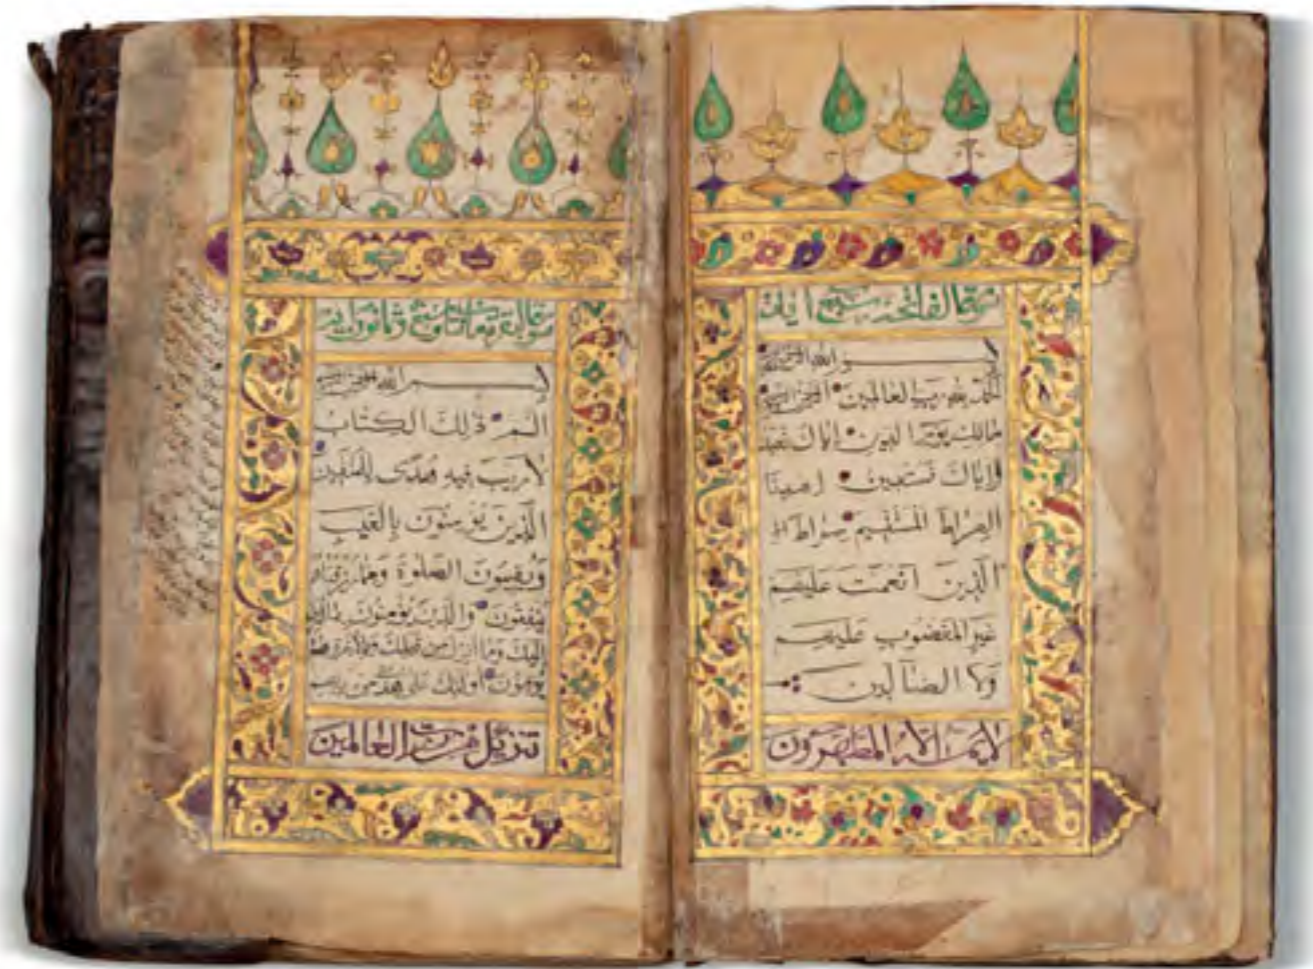 سورة الفاتحة سبع آيات
بسم الله الرحمن الرحيم
الحمد لله رب العالمين الرحمن الرحيم
مالك يوم الدين إياك نعبد
وإياك نستعين اهدنا
الصراط المستقيم صراط
الذين أنعمت عليهم
غير المغضوب عليهم
ولا الضآلين
لا يمسه إلا المطهرون
سورة البقرة مائتان وسبع وثمانون آية
بسم الله الرحمن الرحيم
الم ذلك الكتاب
لا ريب فيه هدى للمتقين
الذين يؤمنون بالغيب
ويقيمون الصلوة ومما رزقناهم
ينفقون والذين يؤمنون بما أنزل
إليك وما أنزل من قبلك وبالآخرة هم
يوقنون أولئك على هدى من ربهم
تنزيل من رب العالمين